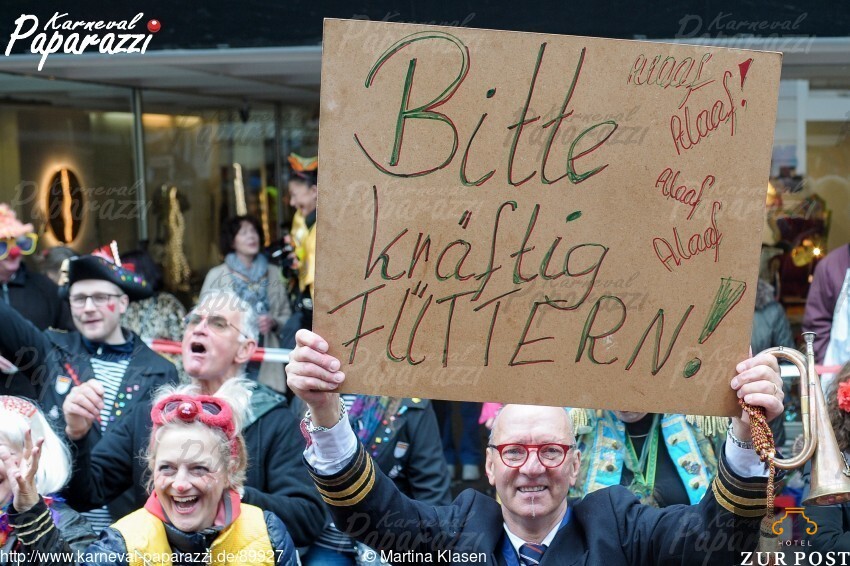 Karneval
Paparazzi
Bitte
kräftig
FÜTTERN!
Alaaf
Alaaf!
Alaaf
Alaaf
http://www.karneval-paparazzi.de/89927
© Martina Klasen
HOTEL
ZUR POST